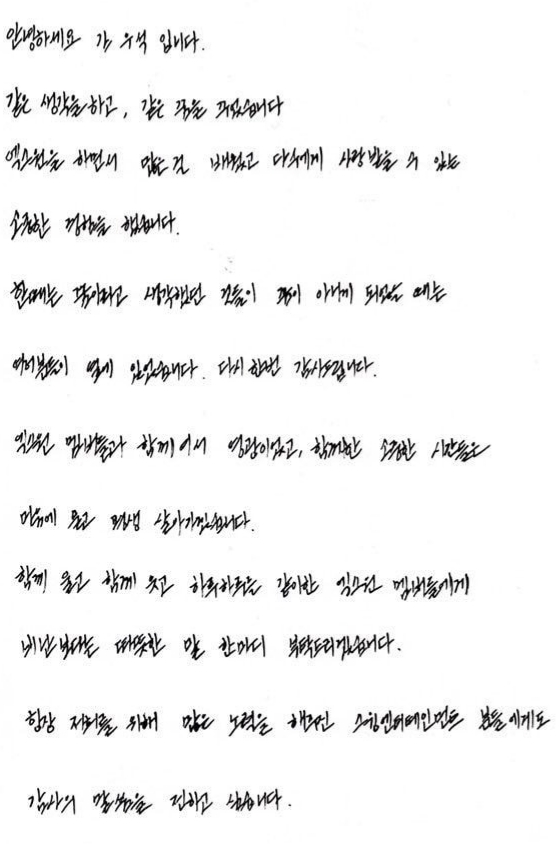 안녕하세요 김 우석 입니다.
같은 생각을하고, 같은 꿈을 꾸었습니다
엑스원을 하면서 많은걸 배웠고 다수에게 사랑받을 수 있는
소중한 경험을 했습니다.
한때는 꿈이라고 생각했던 것들이 꿈이 아니게 되었을 때는
여러분들이 옆에 있었습니다. 다시한번 감사드립니다.
엑스원 멤버들과 함께여서 영광이었고, 함께한 소중한 시간들은
마음에 품고 평생 살아가겠습니다.
함께 울고 함께 웃고 하루하루를 같이한 엑스원 멤버들에게
비난보다는 따뜻한 말 한마디 부탁드리겠습니다.
항상 저희를 위해 많은 노력을 해주신 스윙엔터테인먼트 분들에게도
감사의 말씀을 전하고 싶습니다.